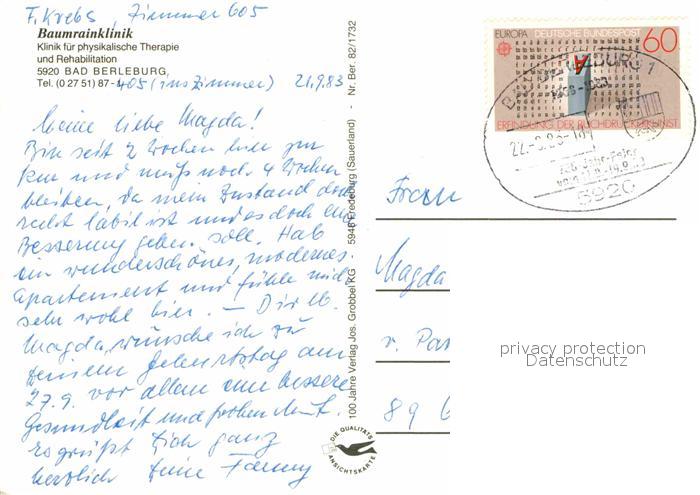 F. Krebs, Zimmer 605
Baumrainklinik
Klinik für physikalische Therapie
und Rehabilitation
5920 BAD BERLEBURG,
Tel. (0 27 51) 87- 405 (ins Zimmer) 21.9.83
Meine liebe Magda!
Bin seit 2 Wochen hier zur
Kur und muß noch 4 Wochen
bleiben, da mein Zustand doch
recht labil ist und es doch eine
Besserung geben soll. Hab
ein wunderschönes, modernes
Apartement und fühle mich
sehr wohl hier. – Dir lb.
Magda, wünsche ich zu
Deinem Geburtstag am
27.9. vor allem eine bessere
Gesundheit und frohen Mut.
Es grüßt Dich ganz
herzlich Deine Fanny
100 Jahre Verlag Jos. Grobbel KG 5948 Fredeburg (Sauerland) - Nr. Ber. 82/1732
DIE QUALITÄTS
ANSICHTSKARTE
EUROPA DEUTSCHE BUNDESPOST 60
A
ERFINDUNG DER BUCHDRUCKERKUNST
BAD BERLEBURG 1
22.-9.83-
725 Jahr-Feier
5920
Frau
Magda
v. Pas
89
privacy protection
Datenschutz